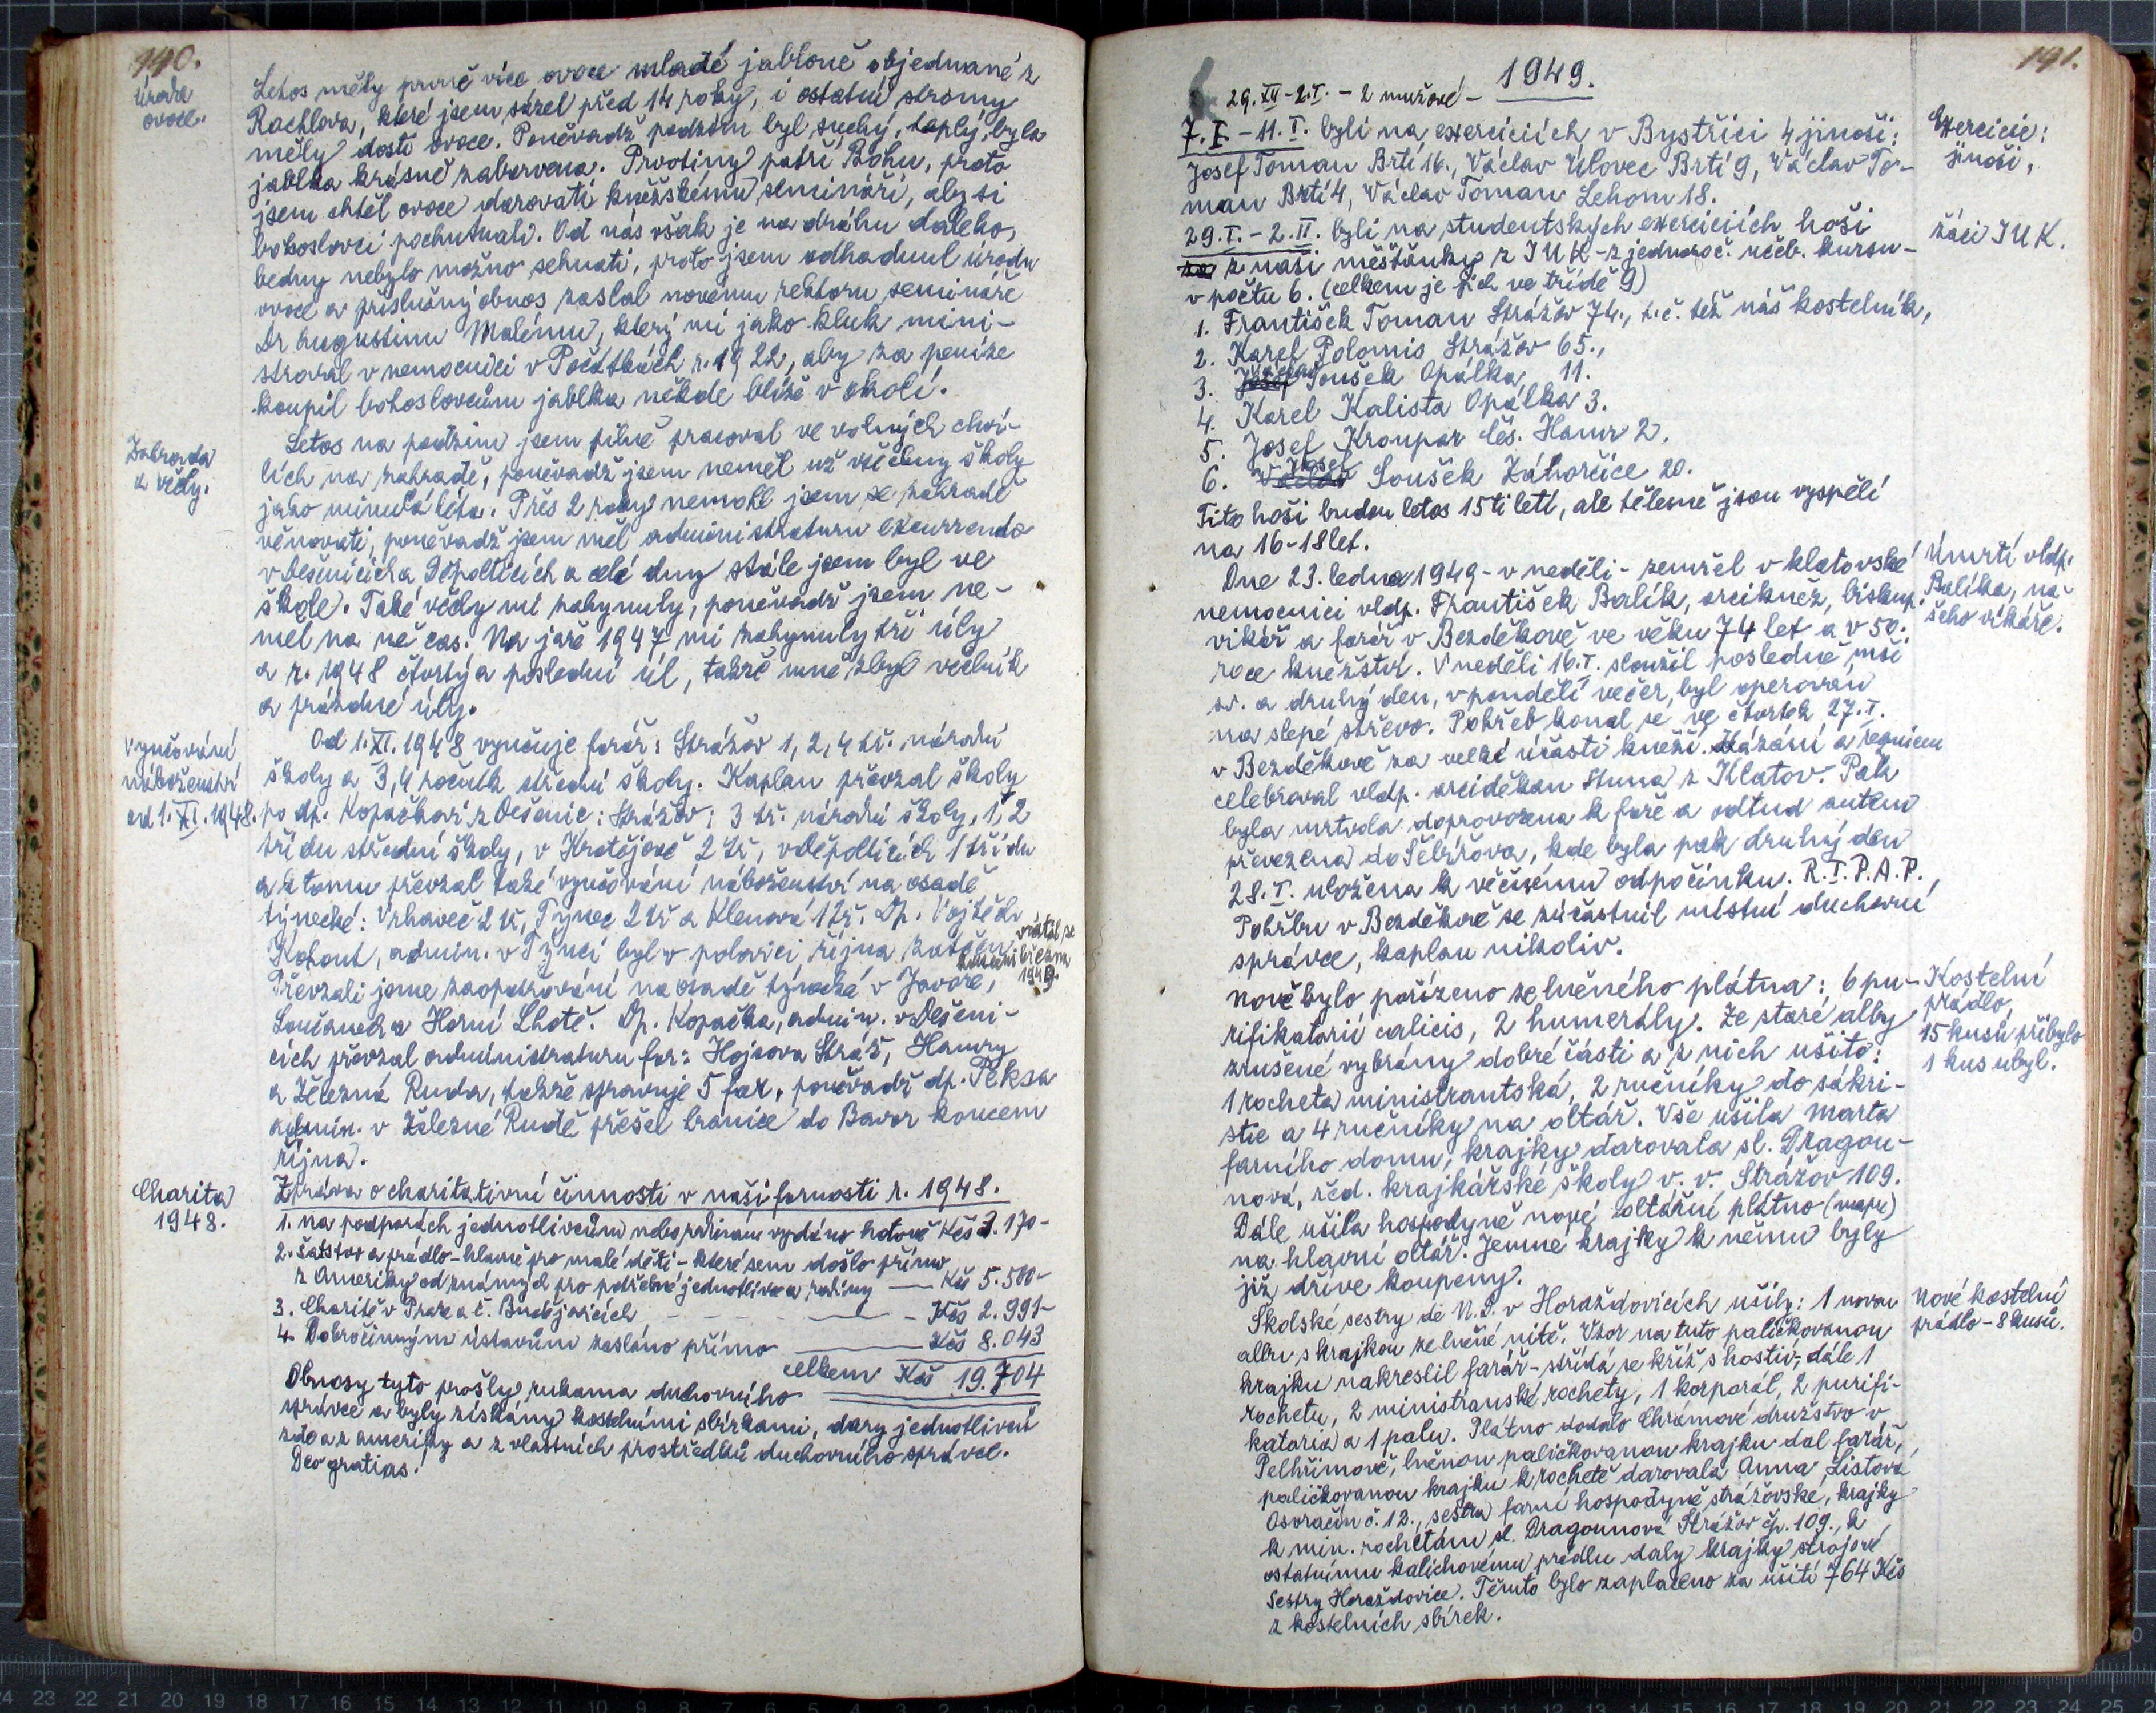 190.
úroda
ovoce.
Letos měly prvně více ovoce mladé jabloně objednané z
Rachlova, které jsem sázel před 14 roky, i ostatní stromy
měly dosti ovoce. Poněvadž podzim byl suchý, teplý, byla
jablka krásně zabarvena. Prvotiny patří Bohu, proto
jsem chtěl ovoce darovati kněžskému semináři, aby si
bohoslovci pochutnali. Od nás však je na dráhu daleko,
bedny nebylo možno sehnati, proto jsem odhadnul úrodu
ovoce a příslušný obnos zaslal novému rektoru semináře
Dr Augustinu Malému, který mi jako kluk mini-
stroval v nemocnici v Počátkách r. 1922, aby za peníze
koupil bohoslovcům jablka někde blíže v okolí.
Zahrada
a včely.
Letos na podzim jsem pilně pracoval ve volných chví-
lích na zahradě, poněvadž jsem neměl už všechny školy
jako minulá léta. Přes 2 roky nemohl jsem se zahradě
věnovati, poněvadž jsem měl administraturu excurrendo
v Dešenicích a Děpolticích a celé dny stále jsem byl ve
škole. Také včely mi zahynuly, poněvadž jsem ne-
měl na ně čas. Na jaře 1947 mi zahynuly tři úly
a r. 1948 čtvrtý a poslední úl, takže mně zbyl včelník
a prázdné úly.
Vyučování
náboženství
od 1. XI. 1948.
Od 1. XI. 1948 vyučuje farář: Strážov 1, 2, 4 tř. národní
školy a 3, 4 ročník střední školy. Kaplan převzal školy
po dp. Kopačkovi z Dešenic: Strážov: 3 tř. národní školy, 1, 2
třídu střední školy, v Krotějově 2 tř, v Děpolticích 1 třídu
a k tomu převzal také vyučování náboženství na osadě
týnecké: Vrhaveč 2 tř, Týnec 2 tř a Klenová 1 tř. Dp. Vojtěch
Kohout, admin. v Týnci byl v polovici října zatčen. vrátil se
koncem března
1949.
Převzali jsme zaopatřování na osadě týnecké v Javoře,
Loučanech a Horní Lhotě. Dp. Kopačka, admin. v Dešeni-
cích převzal administraturu far: Hojsova Stráž, Hamry
a Železná Ruda, takže spravuje 5 far, poněvadž dp. Peksa
admin. v Železné Rudě přešel hranice do Bavor koncem
října.
Charita
1948.
Zpráva o charitativní činnosti v naší farnosti r. 1948.
1. Na podporách jednotlivcům nebo rodinám vydáno hotově Kčs 3.170-
2. Šatstvo a prádlo - hlavně pro malé děti - které sem došlo přímo
z Ameriky od známých pro potřebné jednotlivce a rodiny — Kčs 5.500-
3. Charitě v Praze a č. Budějovicích - - - — - Kčs 2.991-
4. Dobročinným ústavům zasláno přímo — Kčs 8.043
celkem Kčs 19.704
Obnosy tyto prošly rukama duchovního
správce a byly získány kostelními sbírkami, dary jednotlivců
zde a z Ameriky a z vlastních prostředků duchovního správce.
Deo gratias!
191.
1949.
29. XII - 2. I. - 2 mužové -
7. I. - 11. I. byli na exerciciích v Bystřici 4 jinoši:
Josef Toman Brtí 16., Václav Úlovec Brtí 9, Václav To-
man Brtí 4, Václav Toman Lehom 18.
Exercicie:
jinoši,
29. I. - 2. II. byli na studentských exerciciích hoši
z naší měšťanky z JUK - z jednoroč. učeb. kursu -
v počtu 6. (celkem je jich ve třídě 9)
žáci JUK.
1. František Toman Strážov 74., t. č. též náš kostelník,
2. Karel Polomis Strážov 65.,
3. Josef Václav Toušek Opálka 11.
4. Karel Kalista Opálka 3.
5. Josef Kroupar čes. Hamr 2.
6. Václav Josef Soušek Záhorčice 20.
Tito hoši budou letos 15ti letí, ale tělesně jsou vyspělí
na 16-18 let.
Dne 23. ledna 1949 - v neděli - zemřel v klatovské
nemocnici vldp. František Balík, arcikněz, biskup.
vikář a farář v Bezděkově ve věku 74 let a v 50.
roce kněžství. V neděli 16. I. sloužil posledně mši
sv. a druhý den, v pondělí večer, byl operován
na slepé střevo. Pohřeb konal se ve čtvrtek 27. I.
v Bezděkově za velké účasti kněží. Kázání a requiem
celebroval vldp. arciděkan Stuna z Klatov. Pak
byla mrtvola doprovozena k faře a odtud autem
převezena do Sebířova, kde byla pak druhý den
28. I. uložena k věčnému odpočinku. R. I. P. A. P.
Pohřbu v Bezděkově se zúčastnil místní duchovní
správce, kaplan nikoliv.
Úmrtí vldp.
Balíka, na-
šeho vikáře.
Nově bylo pořízeno ze lněného plátna: 6 pu-
rifikatorií calicis, 2 humerály. Ze staré alby
zrušené vybrány dobré části a z nich ušito:
1 rocheta ministrantská, 2 ručníky do sákri-
stie a 4 ručníky na oltář. Vše ušila Marta
farního domu, krajky darovala sl. Dragou-
nová, řed. krajkářské školy v. v. Strážov 109.
Dále ušila hospodyně nové oltářní plátno (mapu)
na hlavní oltář. Jemné krajky k němu byly
již dříve koupeny.
Kostelní
prádlo,
15 kusů přibylo
1 kus ubyl.
Školské sestry de N. D. v Horažďovicích ušily: 1 novou
albu s krajkou ze lněné nitě. Vzor na tuto paličkovanou
krajku nakreslil farář - střídá se kříž s hostií, dále 1
rochetu, 2 ministranské rochety, 1 korporál, 2 purifi-
katoria a 1 palu. Plátno dodalo Chrámové družstvo v
Pelhřimově, lněnou paličkovanou krajku dal farář,
paličkovanou krajku k rochetě darovala Anna Listová
Osvračín č. 12., sestra farní hospodyně strážovské, krajky
k min. rochetám sl. Dragounová Strážov čp. 109., k
ostatnímu kalichovému prádlu daly krajky strojové
Sestry Horažďovice. Těmto bylo zaplaceno za ušití 764 Kčs
z kostelních sbírek.
nové kostelní
prádlo - 8 kusů.